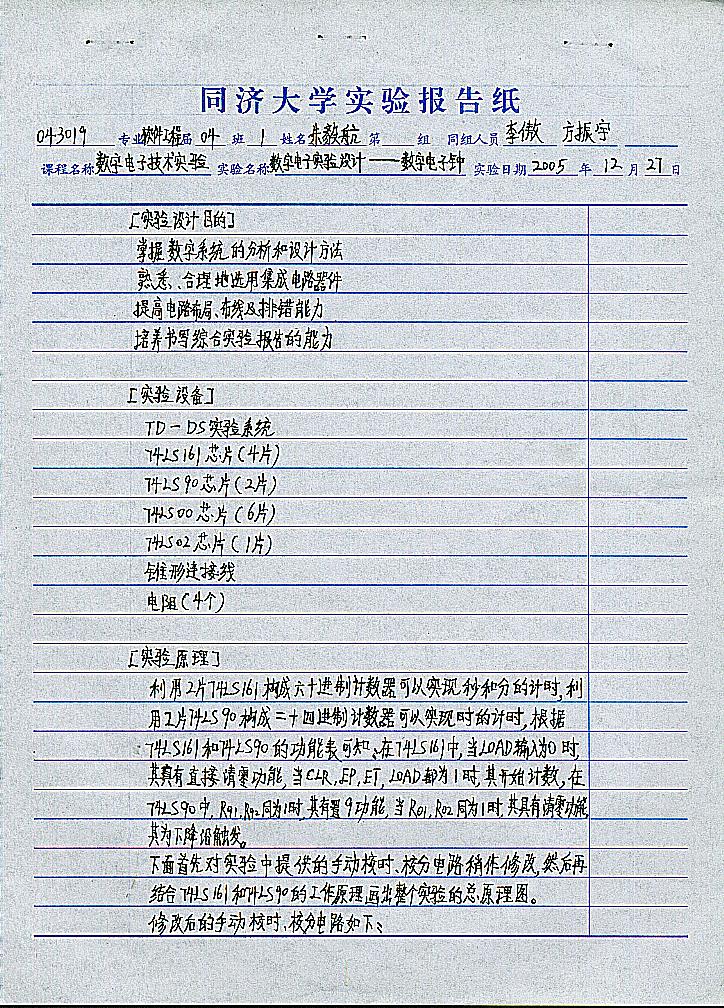 同济大学实验报告纸
043019 专业 软件工程 届 04 班 1 姓名 朱毅航 第 组 同组人员 李傲 方振宇
课程名称 数字电子技术实验 实验名称 数字电子实验设计——数字电子钟 实验日期 2005 年 12 月 27 日
[实验设计目的]
掌握数字系统的分析和设计方法
熟悉、合理地选用集成电路器件
提高电路布局、布线及排错能力
培养书写综合实验报告的能力
[实验设备]
TD-DS实验系统
74LS161芯片(4片)
74LS90芯片(2片)
74LS00芯片(6片)
74LS02芯片(1片)
锥形连接线
电阻(4个)
[实验原理]
利用2片74LS161构成六十进制计数器可以实现秒和分的计时,利
用2片74LS90构成二十四进制计数器可以实现时的计时,根据
74LS161和74LS90的功能表可知:在74LS161中,当LOAD输入为0时,
其具有直接清零功能,当CLR,EP,ET,LOAD都为1时,其开始计数,在
74LS90中,R91,R92同为1时,其有置9功能,当R01,R02同为1时,其具有清零功能,
其为下降沿触发。
下面首先对实验中提供的手动校时、校分电路稍作修改,然后再
结合74LS161和74LS90的工作原理画出整个实验的总原理图。
修改后的手动校时、校分电路如下: